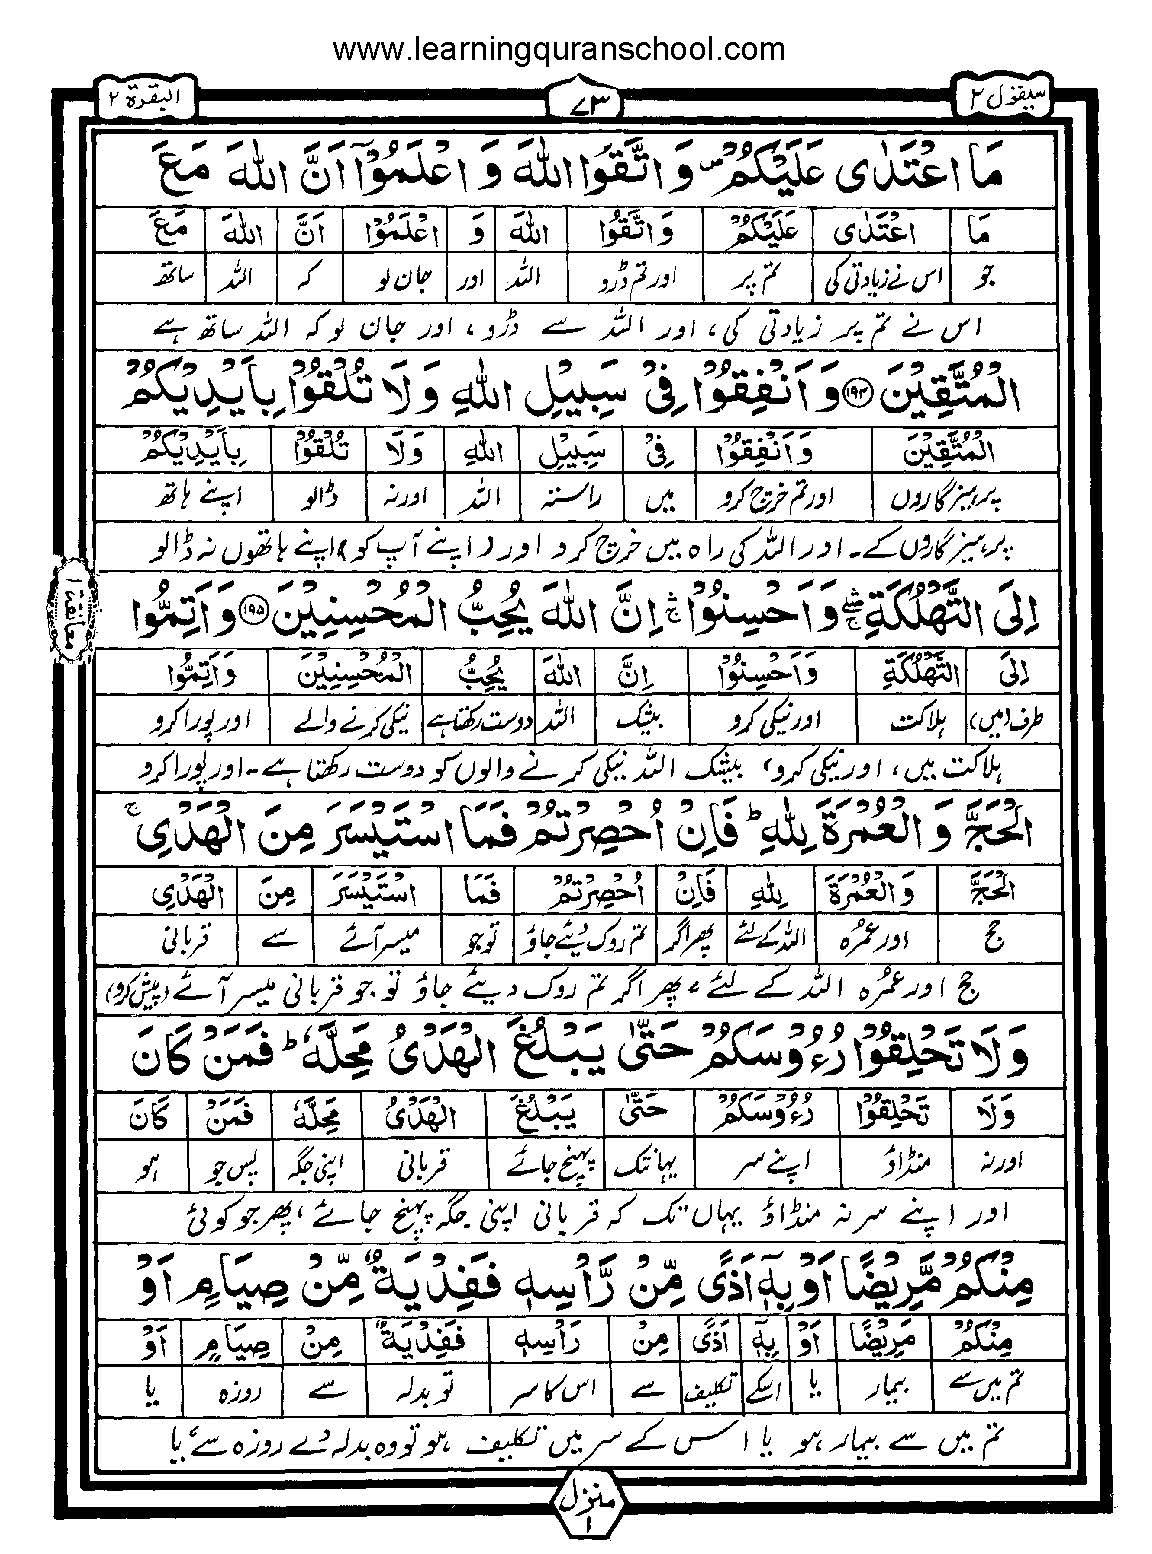 www.learningquranschool.com
سیقول ۲ ۷۳ البقرة ۲
مَا اعْتَدٰى عَلَيْكُمْ ۪ وَ اتَّقُوا اللّٰهَ وَ اعْلَمُوْۤا اَنَّ اللّٰهَ مَعَ
مَا اعْتَدٰى عَلَيْكُمْ وَ اتَّقُوا اللّٰهَ وَ اعْلَمُوْٓا اَنَّ اللّٰهَ مَعَ
جو اس نے زیادتی کی تم پر اور تم ڈرو اللہ اور جان لو کہ اللہ ساتھ
اس نے تم پر زیادتی کی، اور اللہ سے ڈرو، اور جان لو کہ اللہ ساتھ ہے
الْمُتَّقِيْنَ ۱۹۴ وَ اَنْفِقُوْا فِيْ سَبِيْلِ اللّٰهِ وَلَا تُلْقُوْا بِاَيْدِيْكُمْ
الْمُتَّقِيْنَ وَ اَنْفِقُوْا فِيْ سَبِيْلِ اللّٰهِ وَلَا تُلْقُوْا بِاَيْدِيْكُمْ
پرہیزگاروں اور تم خرچ کرو میں راستہ اللہ اور نہ ڈالو اپنے ہاتھ
پرہیزگاروں کے۔ اور اللہ کی راہ میں خرچ کرو اور (اپنے آپ کو) اپنے ہاتھوں نہ ڈالو
معانقة ۱
اِلَى التَّهْلُكَةِ ۛۚ وَ اَحْسِنُوْا ۛۚ اِنَّ اللّٰهَ يُحِبُّ الْمُحْسِنِيْنَ ۱۹۵ وَ اَتِمُّوا
اِلَى التَّهْلُكَةِ وَ اَحْسِنُوْا اِنَّ اللّٰهَ يُحِبُّ الْمُحْسِنِيْنَ وَ اَتِمُّوا
طرف (میں) ہلاکت اور نیکی کرو بیشک اللہ دوست رکھتا ہے نیکی کرنے والے اور پورا کرو
ہلاکت میں، اور نیکی کرو، بیشک اللہ نیکی کرنے والوں کو دوست رکھتا ہے۔ اور پورا کرو
الْحَجَّ وَ الْعُمْرَةَ لِلّٰهِ ؕ فَاِنْ اُحْصِرْتُمْ فَمَا اسْتَيْسَرَ مِنَ الْهَدْيِ ۚ
الْحَجَّ وَ الْعُمْرَةَ لِلّٰهِ فَاِنْ اُحْصِرْتُمْ فَمَا اسْتَيْسَرَ مِنَ الْهَدْيِ
حج اور عمرہ اللہ کے لئے پھر اگر تم روک دیئے جاؤ تو جو میسر آئے سے قربانی
حج اور عمرہ اللہ کے لئے، پھر اگر تم روک دیئے جاؤ تو جو قربانی میسر آئے (پیش کرو)
وَلَا تَحْلِقُوْا رُءُوْسَكُمْ حَتّٰى يَبْلُغَ الْهَدْيُ مَحِلَّهٗ ؕ فَمَنْ كَانَ
وَلَا تَحْلِقُوْا رُءُوْسَكُمْ حَتّٰى يَبْلُغَ الْهَدْيُ مَحِلَّهٗ فَمَنْ كَانَ
اور نہ منڈاؤ اپنے سر یہانتک پہنچ جائے قربانی اپنی جگہ پس جو ہو
اور اپنے سر نہ منڈاؤ یہاں تک کہ قربانی اپنی جگہ پہنچ جائے، پھر جو کوئی
مِنْكُمْ مَّرِيْضًا اَوْ بِهٖۤ اَذًى مِّنْ رَّاْسِهٖ فَفِدْيَةٌ مِّنْ صِيَامٍ اَوْ
مِنْكُمْ مَرِيْضًا اَوْ بِهٖٓ اَذًى مِنْ رَاْسِهٖ فَفِدْيَةٌ مِنْ صِيَامٍ اَوْ
تم میں سے بیمار یا اسکے تکلیف سے اس کا سر تو بدلہ سے روزہ یا
تم میں سے بیمار ہو یا اس کے سر میں تکلیف ہو تو وہ بدلہ دے روزہ سے یا
منزل ۱